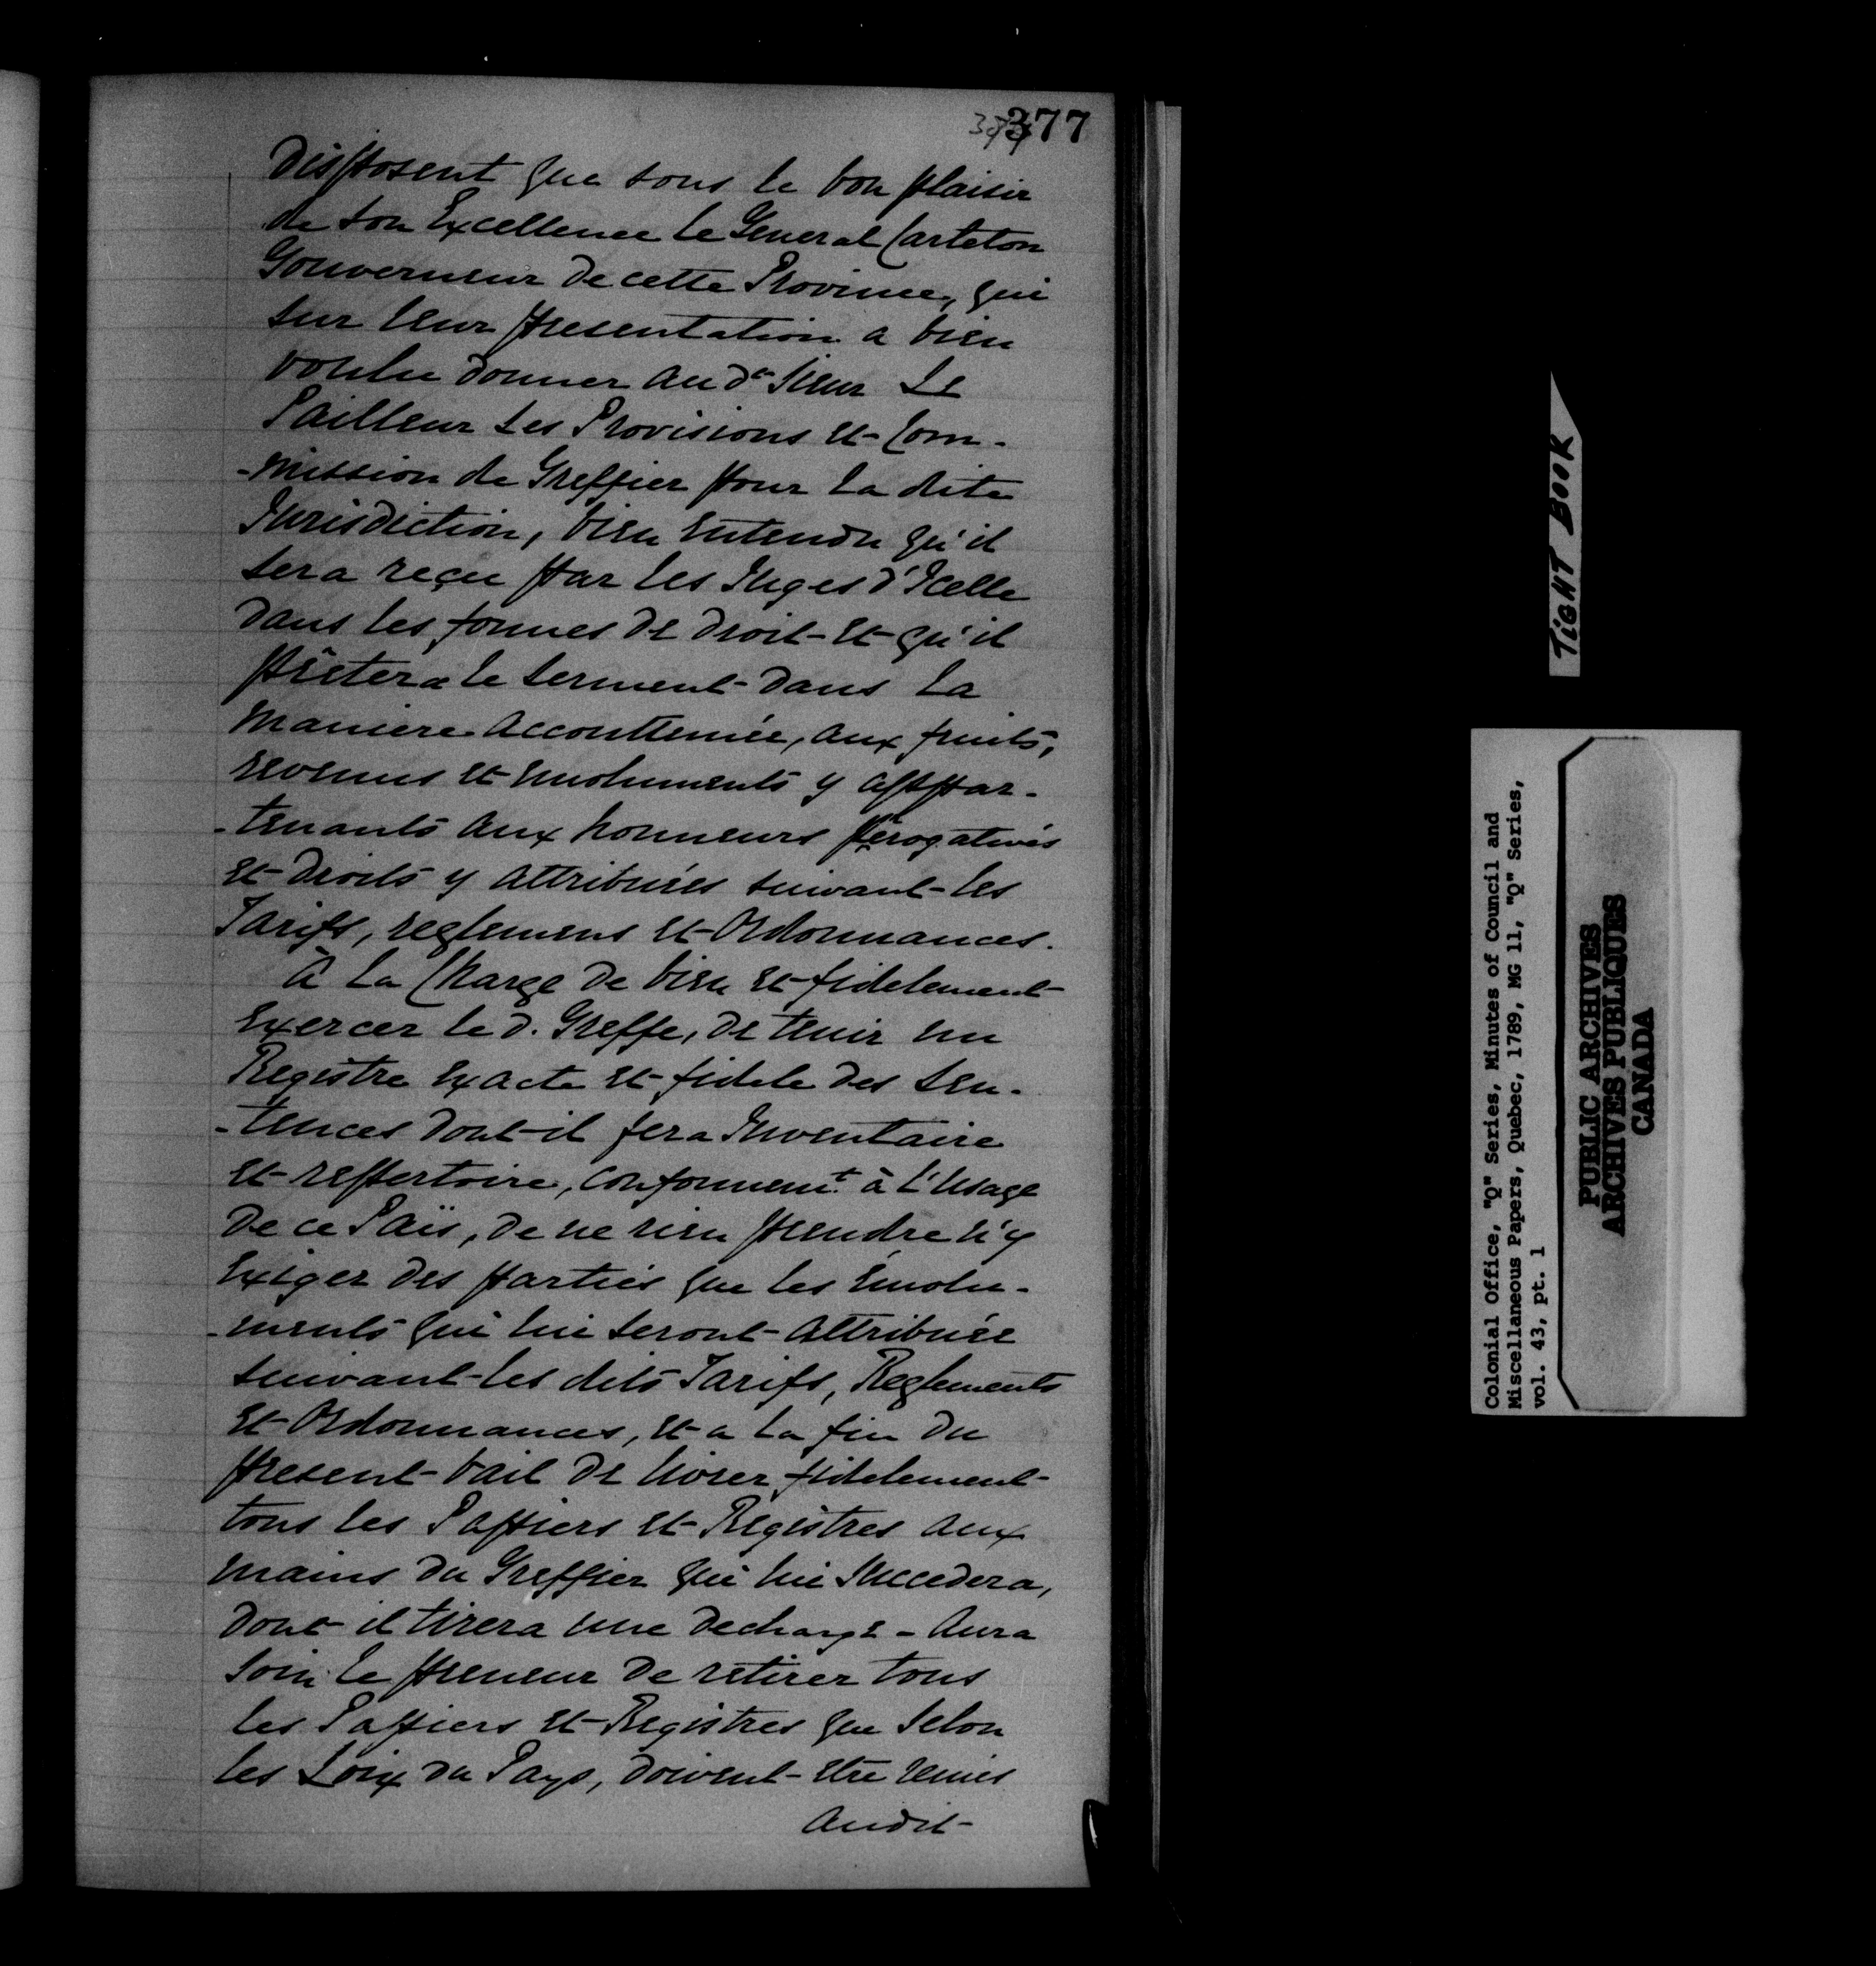 377
disposent que sous le bon plaisir
de son Excellence le General Carleton
Gouverneur de cette Province, qui
sur leur presentation a bien
voulu donner au d. Sieur Le
Pailleur Les Provisions et Com-
-mission de Greffier pour la dite
Jurisdiction, bien entendu qu'il
sera reçu par les Juges d'Icelle
dans les formes de droit et qu'il
prêtera le serment dans la
maniere accoutumée, aux fruits,
revenus et emoluments y appar-
-tenants aux honneurs perogatives
et droits y attribués suivant les
Tarifs, reglemens et Ordonnances.
à la Charge de bien et fidelement
Exercer le d. Greffe, de tenir un
Registre Exacte et fidele des Sen-
-tences dont il fera Inventaire
et repertoire, conformemt. à l'Usage
de ce Païs, de ne rien prendre n'y
Exiger des parties que les Emolu-
-ments qui lui seront attribués
suivant les dits Tarifs, Reglements
et Ordonnances, et a la fin du
present bail de livrer fidelement
tous les Papiers et Registres aux
mains du Greffier qui lui succedera,
dont il tirera une decharge - Aura
soin le preneur de retirer tous
les Papiers et Registres que Selon
les Loix du Pays, doivent etre remis
audit
TIGHT BOOK
Colonial Office, "Q" Series, Minutes of Council and
Miscellaneous Papers, Quebec, 1789, MG 11, "Q" Series,
vol. 43, pt. 1
PUBLIC ARCHIVES
ARCHIVES PUBLIQUES
CANADA